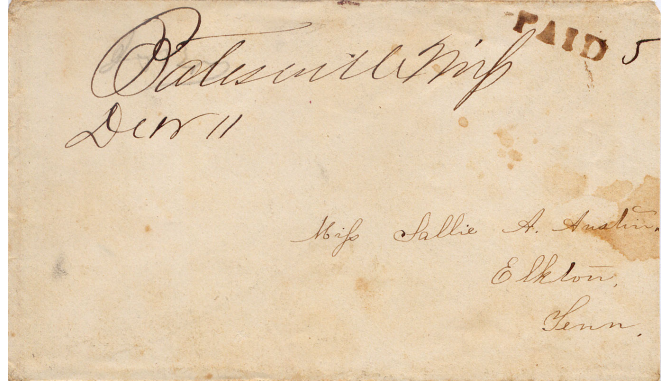 PAID 5
Batesville Miss
Decr 11
Miss Sallie A. Austin.
Elkton,
Tenn.